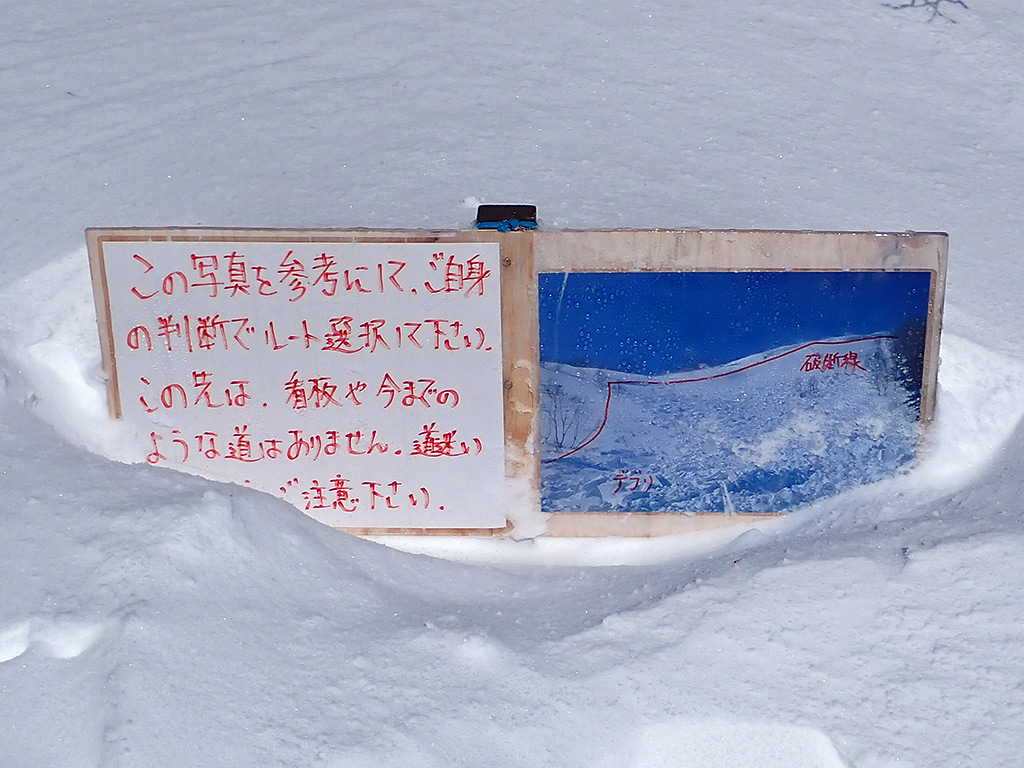 この写真を参考にして、ご自身
の判断でルート選択して下さい。
この先は、看板や今までの
ような道はありません。道迷い
ご注意下さい。
破断線
デブリ